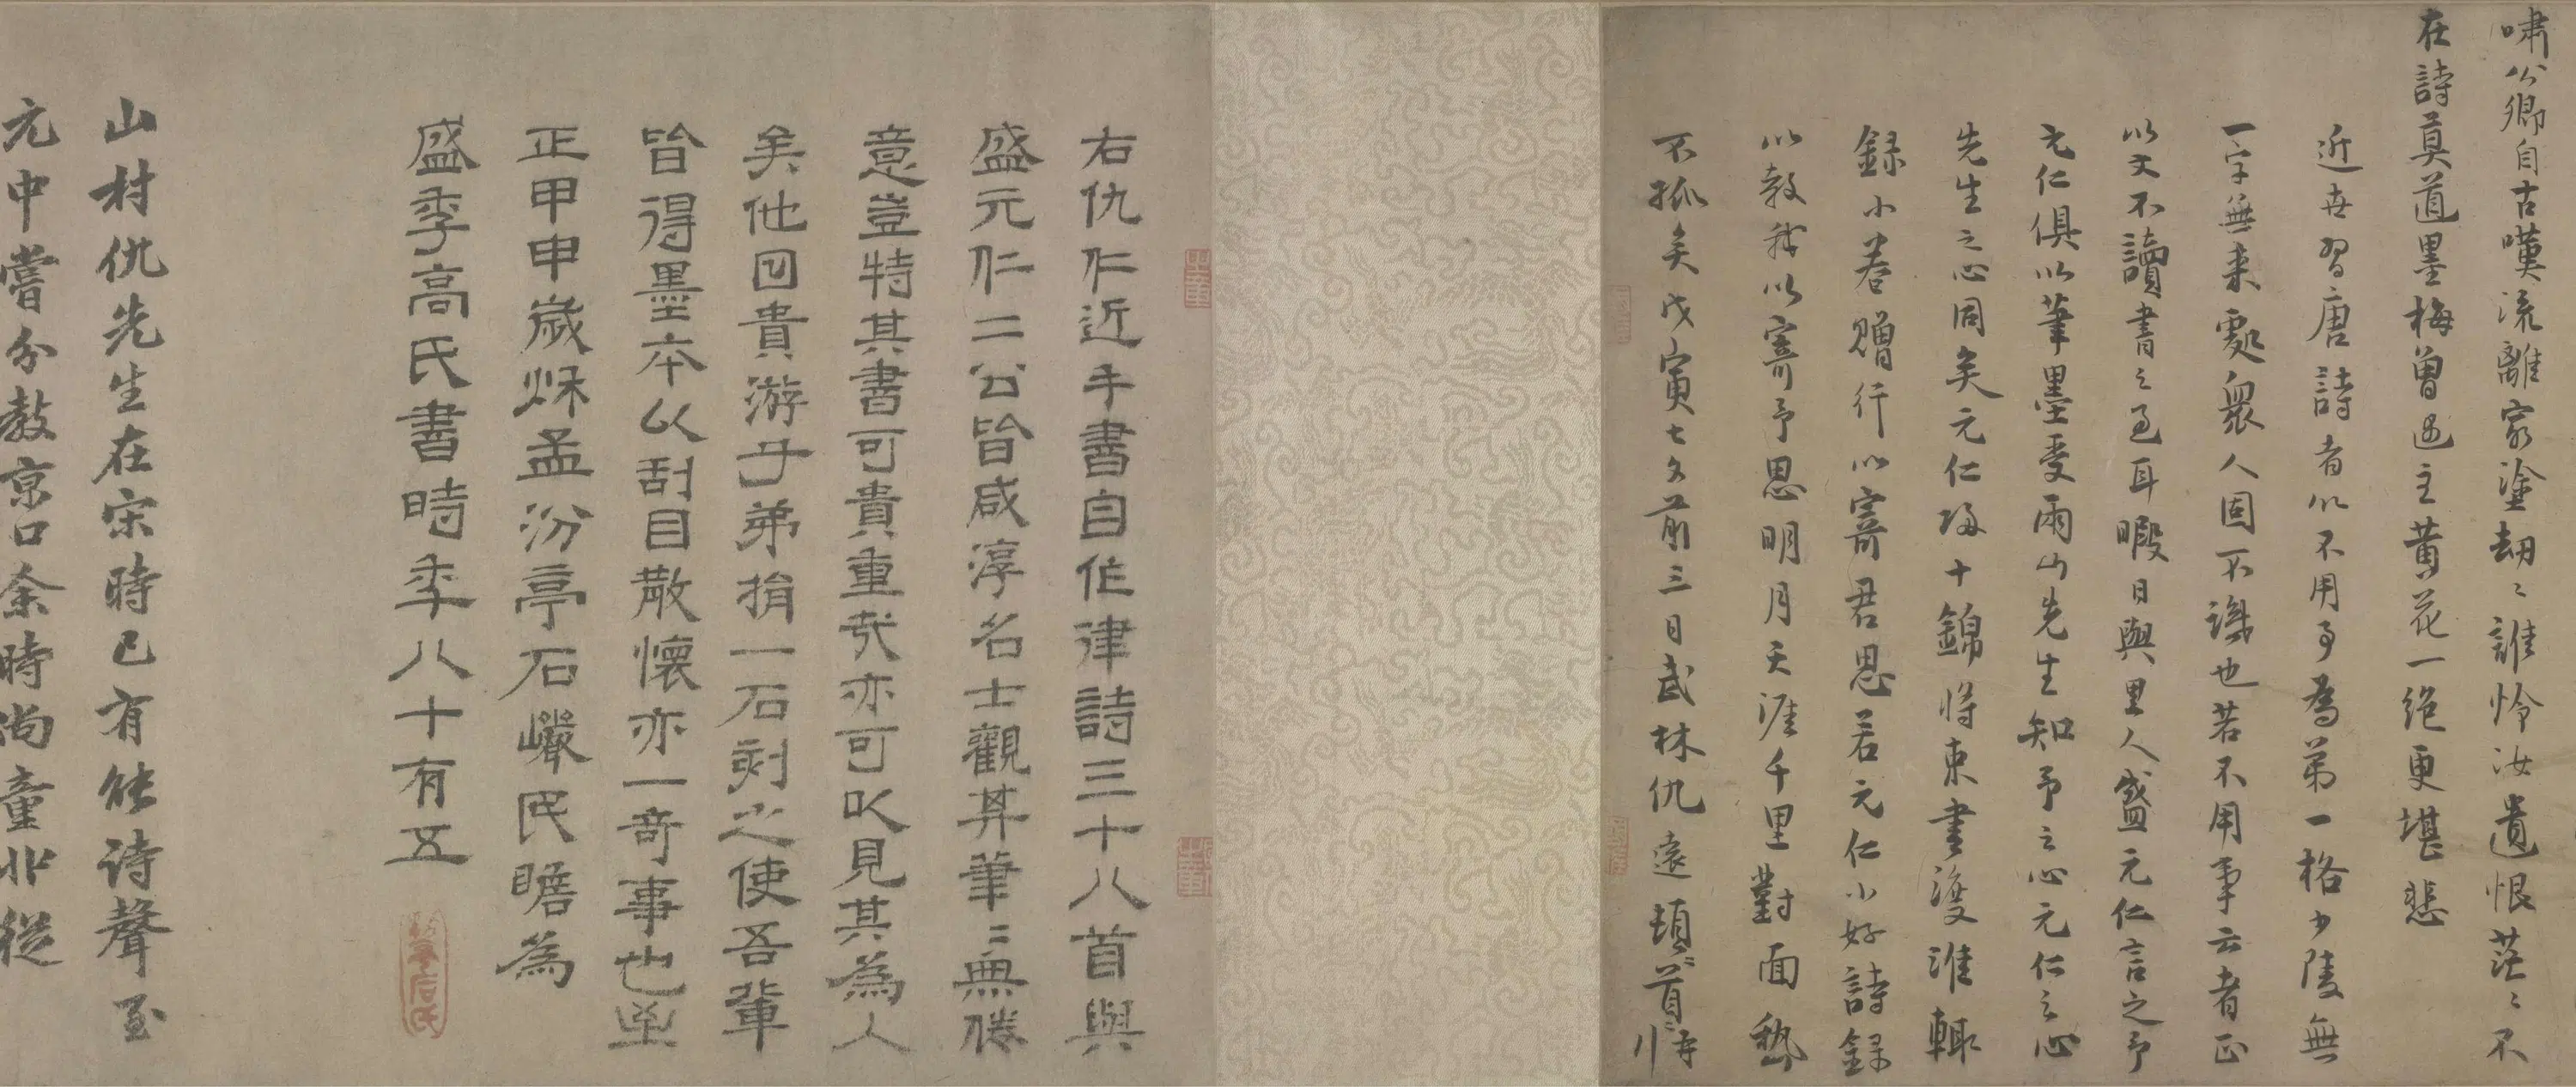 啸公卿自古嘆流離家塗劫〻誰怜汝遺恨茫〻不
在詩莫道墨梅曾遇主黄花一絶更堪悲
近世習唐詩者以不用事為第一格少陵無
一字無来處衆人固不識也若不用事云者正
以文不讀書之過耳暇日與里人盛元仁言之予
元仁俱以筆墨受雨山先生知予之心元仁之心
先生之心同矣元仁歸十錦將束書渡淮輙
録小卷贈行以寄君思若元仁小好詩録
以教我以寄予思明月天涯千里對面勢
不孤矣戊寅七夕前三日武林仇遠頓〻首〻再
右仇仁近手書自作律詩三十八首與
盛元仁二公皆咸淳名士觀其筆〻無倦
意豈特其書可貴重哉亦可以見其為人
矣他日貴游子弟捐一石刻之使吾輩
皆得墨本以刮目散懷亦一奇事也至
正甲申歲秌孟汾亭石巖民瞻為
盛季高氏書時年八十有五
山村仇先生在宋時已有能诗聲至
元中嘗分教京口余時尚童丱從